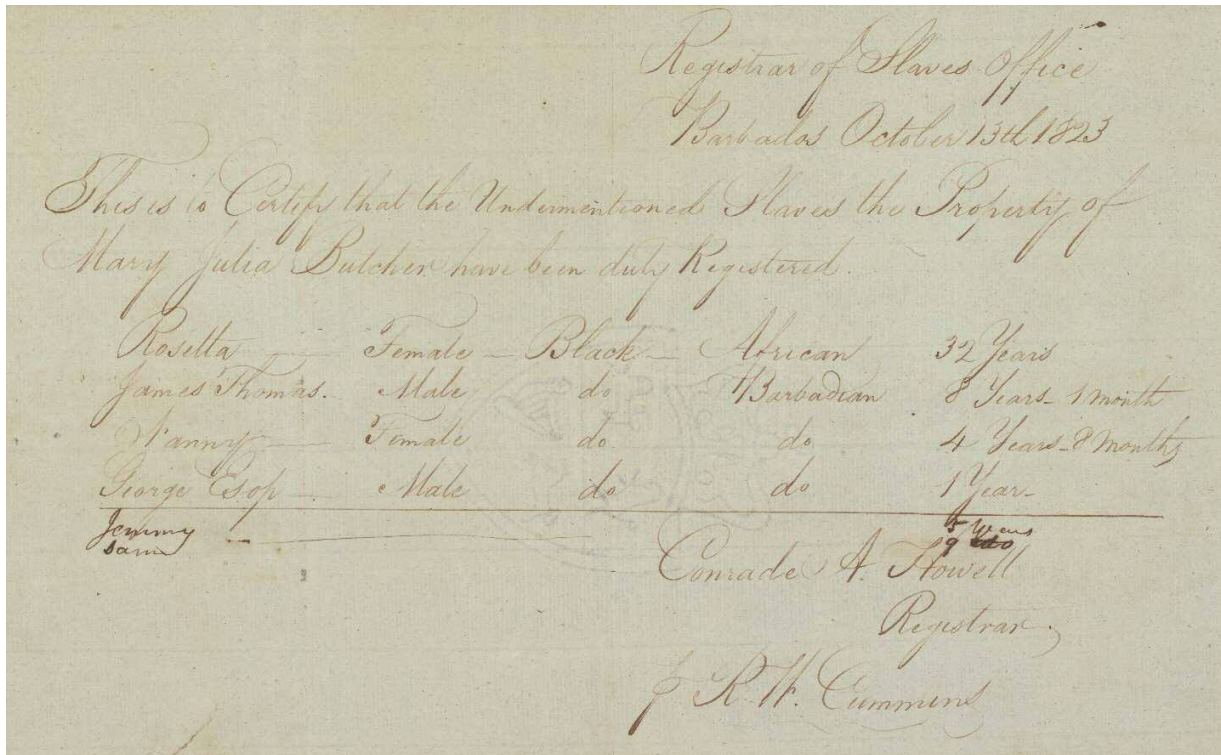 Registrar of Slaves Office
Barbados October 13th 1823
This is to Certify that the Undermentioned Slaves the Property of
Mary Julia Butcher have been duly Registered.
Rosetta — Female — Black — African 32 Years
James Thomas. Male do Barbadian 8 Years - 1 month
Nanny — Female do do 4 Years - 8 Months
George Esop — Male do do 1 Year -
Jemmy 5 Years
Sam 9 do
Conrade A. Howell
Registrar
p R. W. Cummins